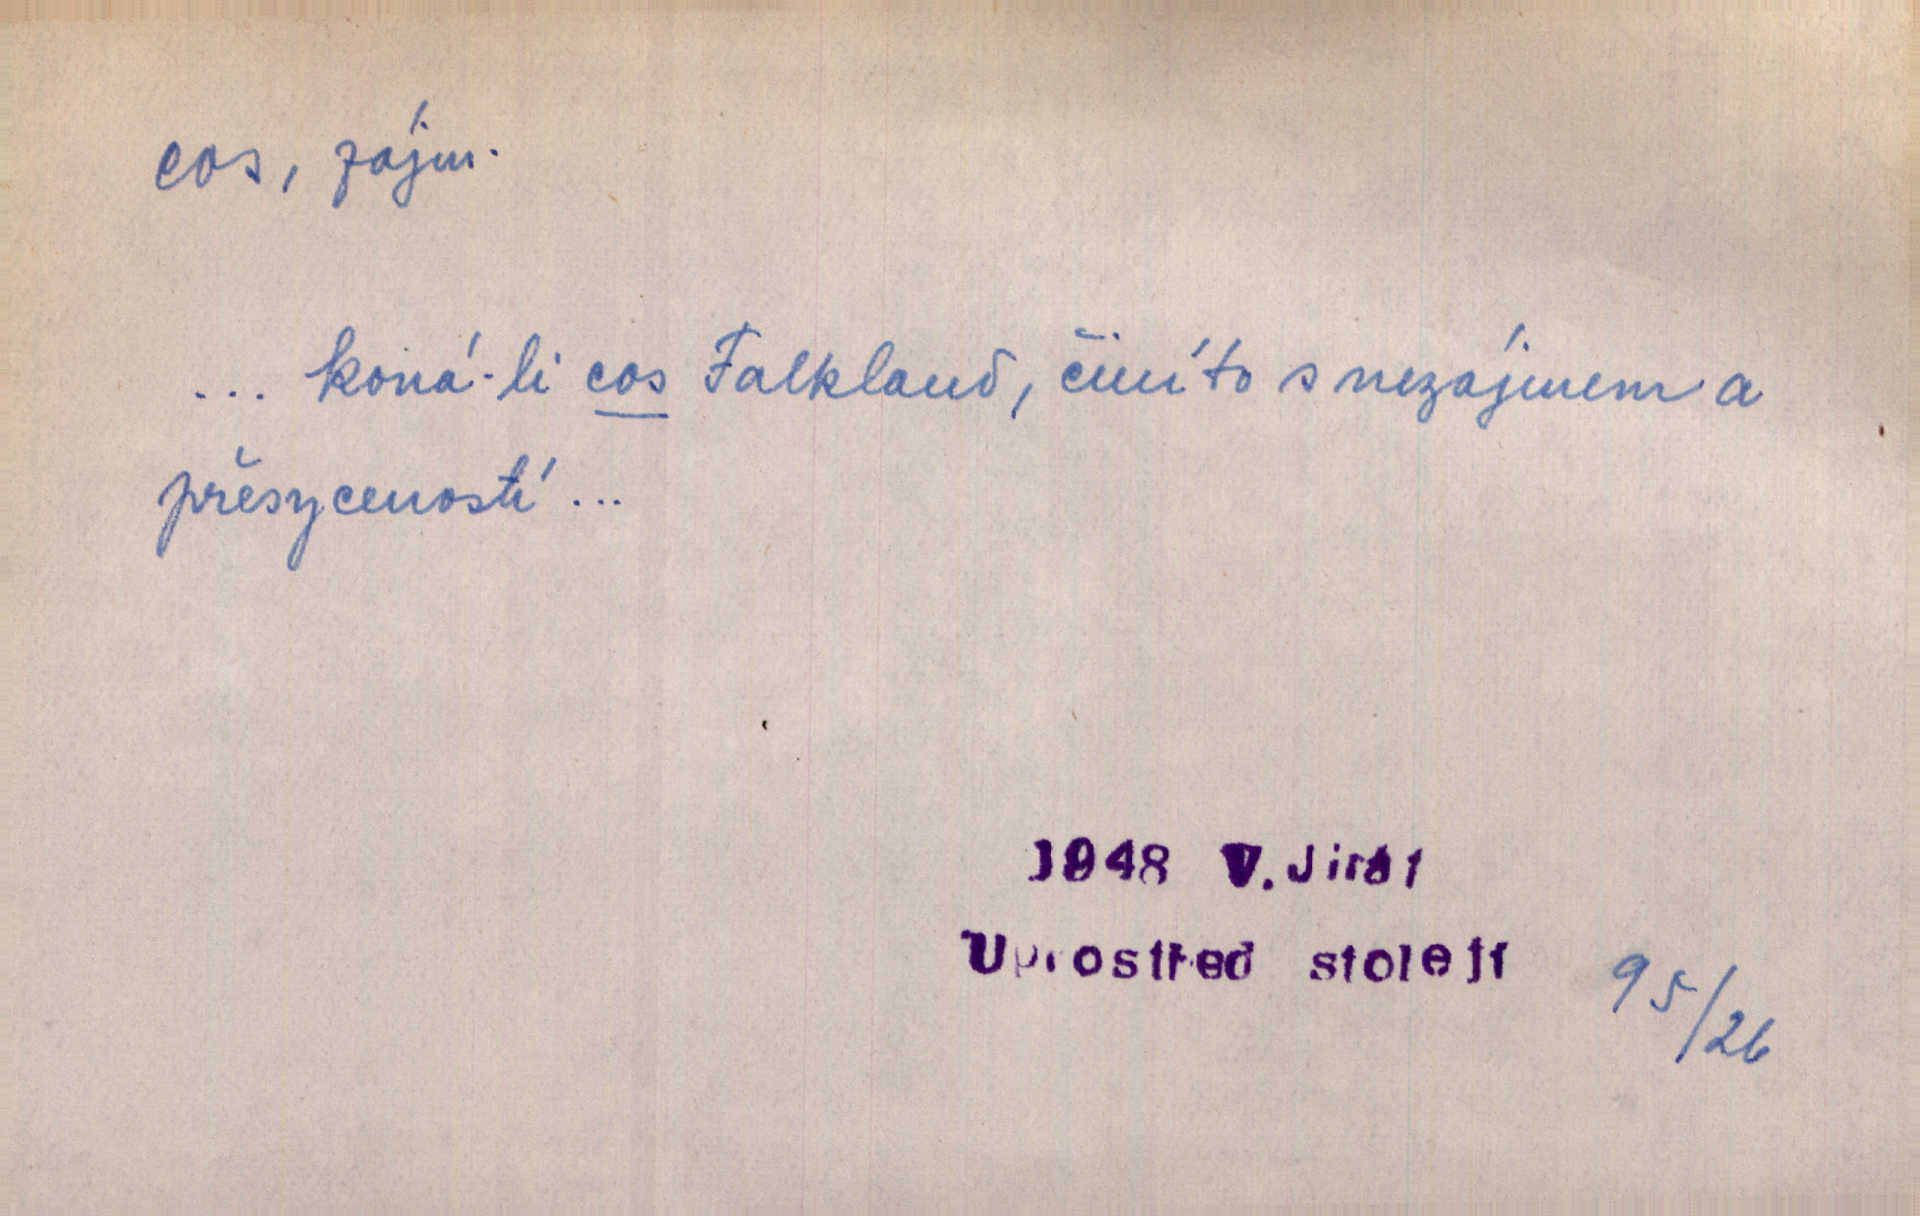 cos, zájm.
... koná-li cos Falkland, činí to s nezájmem a
přesyceností ...
1948 V. Jirát
Uprostřed století
95/26